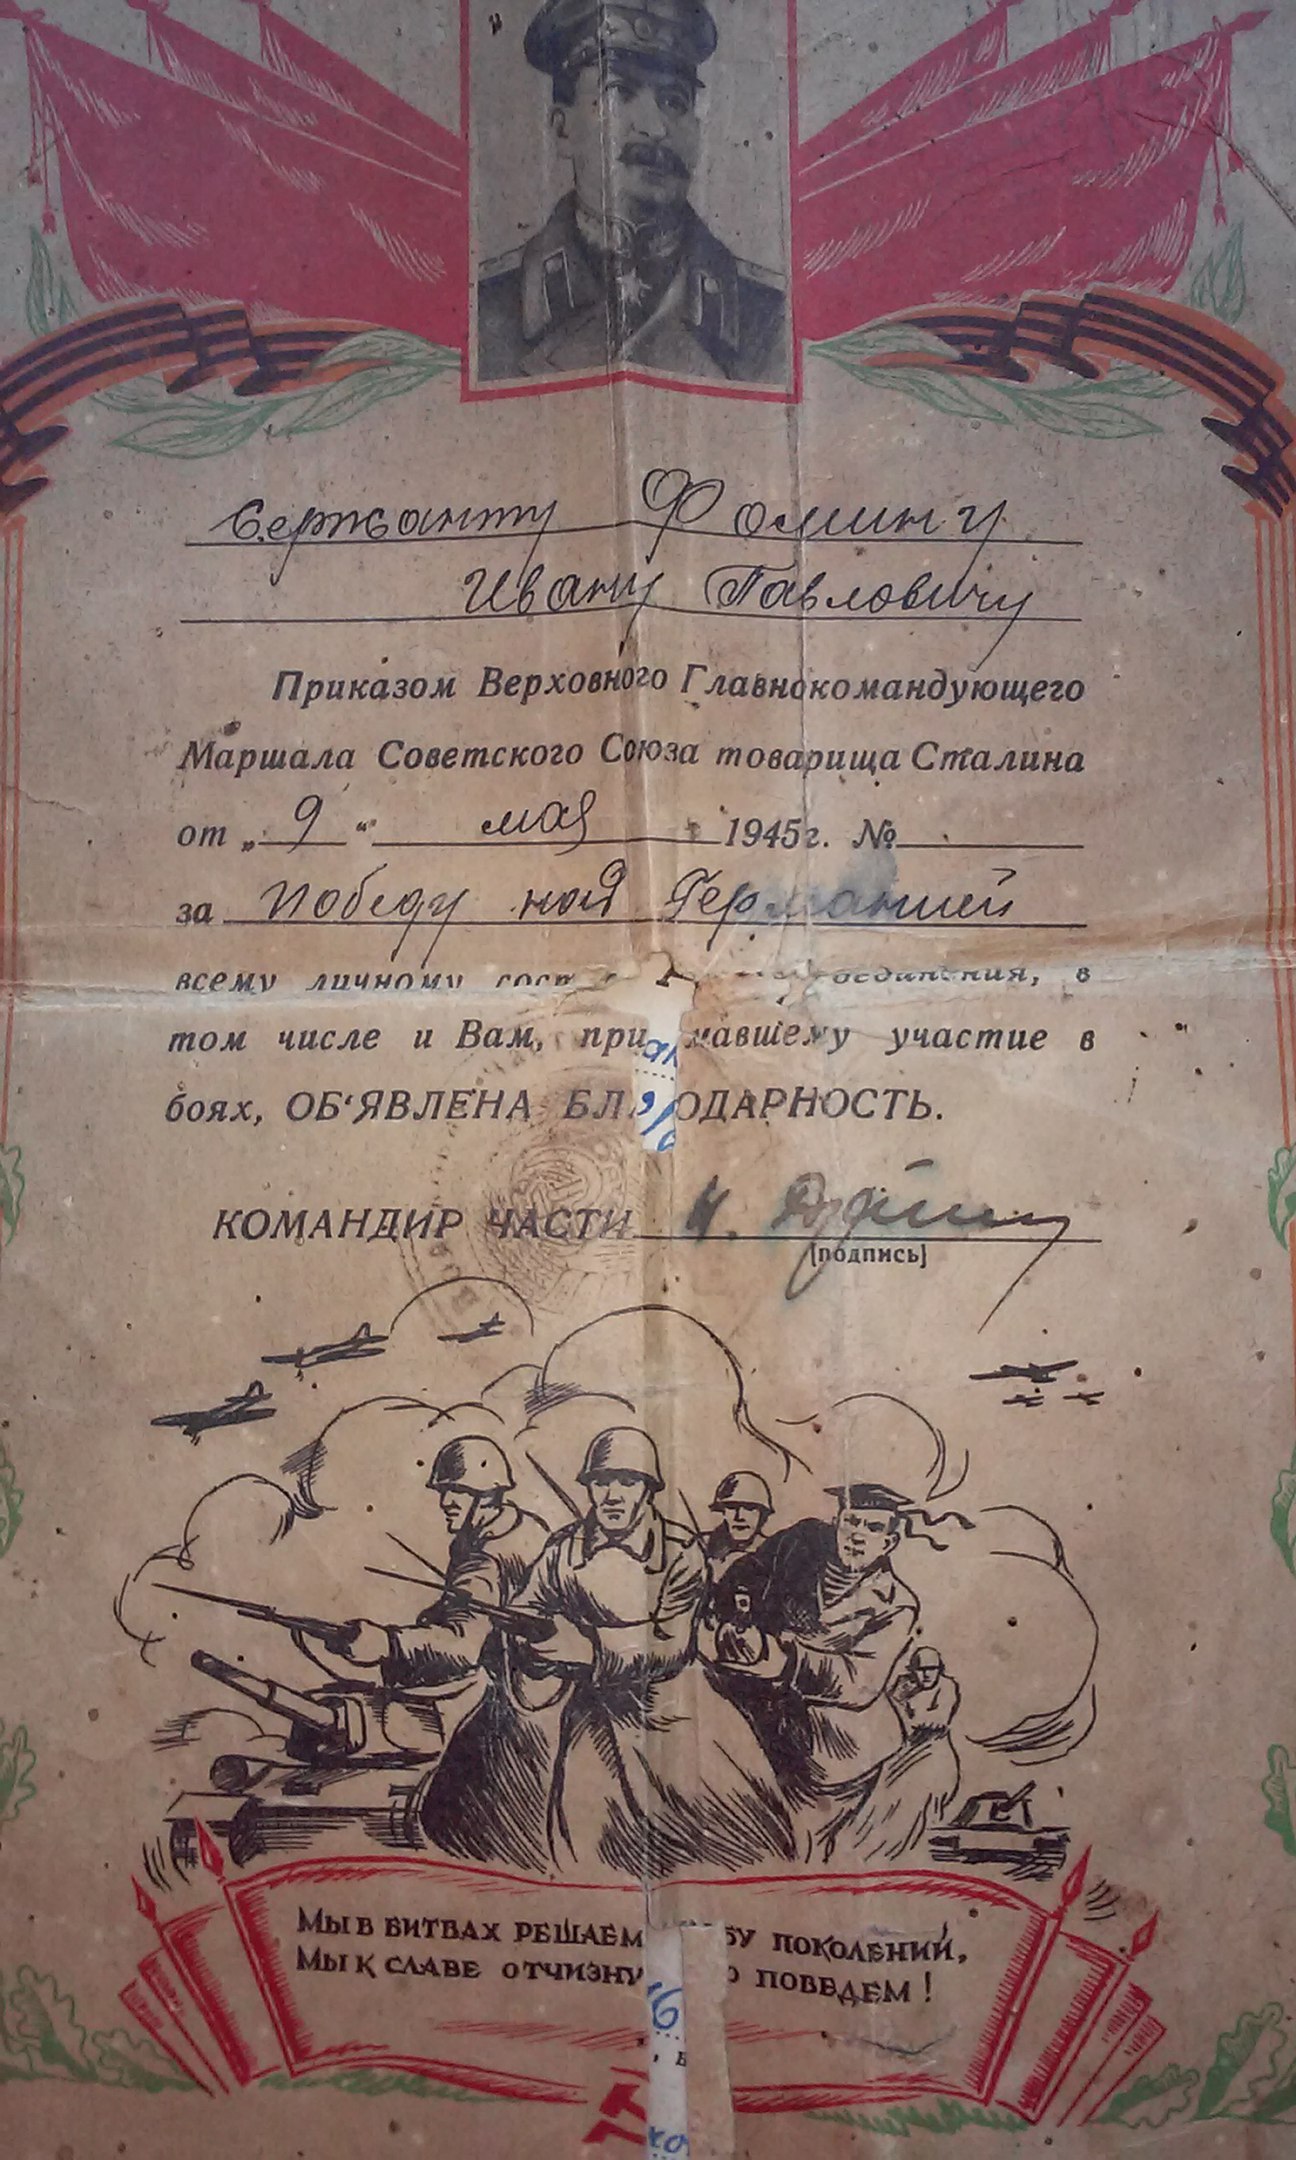 Сержанту Фомину
Ивану Павловичу
Приказом Верховного Главнокомандующего
Маршала Советского Союза товарища Сталина
от „ 9 “ мая 1945г. №
за победу над Германией
всему личному в
том числе и Вам, принимавшему участие в
боях, ОБ‘ЯВЛЕНА БЛАГОДАРНОСТЬ.
КОМАНДИР ЧАСТИ
(подпись)
МЫ В БИТВАХ РЕШАЕМ ПОКОЛЕНИЙ,
МЫ К СЛАВЕ ОТЧИЗНУ ПОВЕДЕМ!